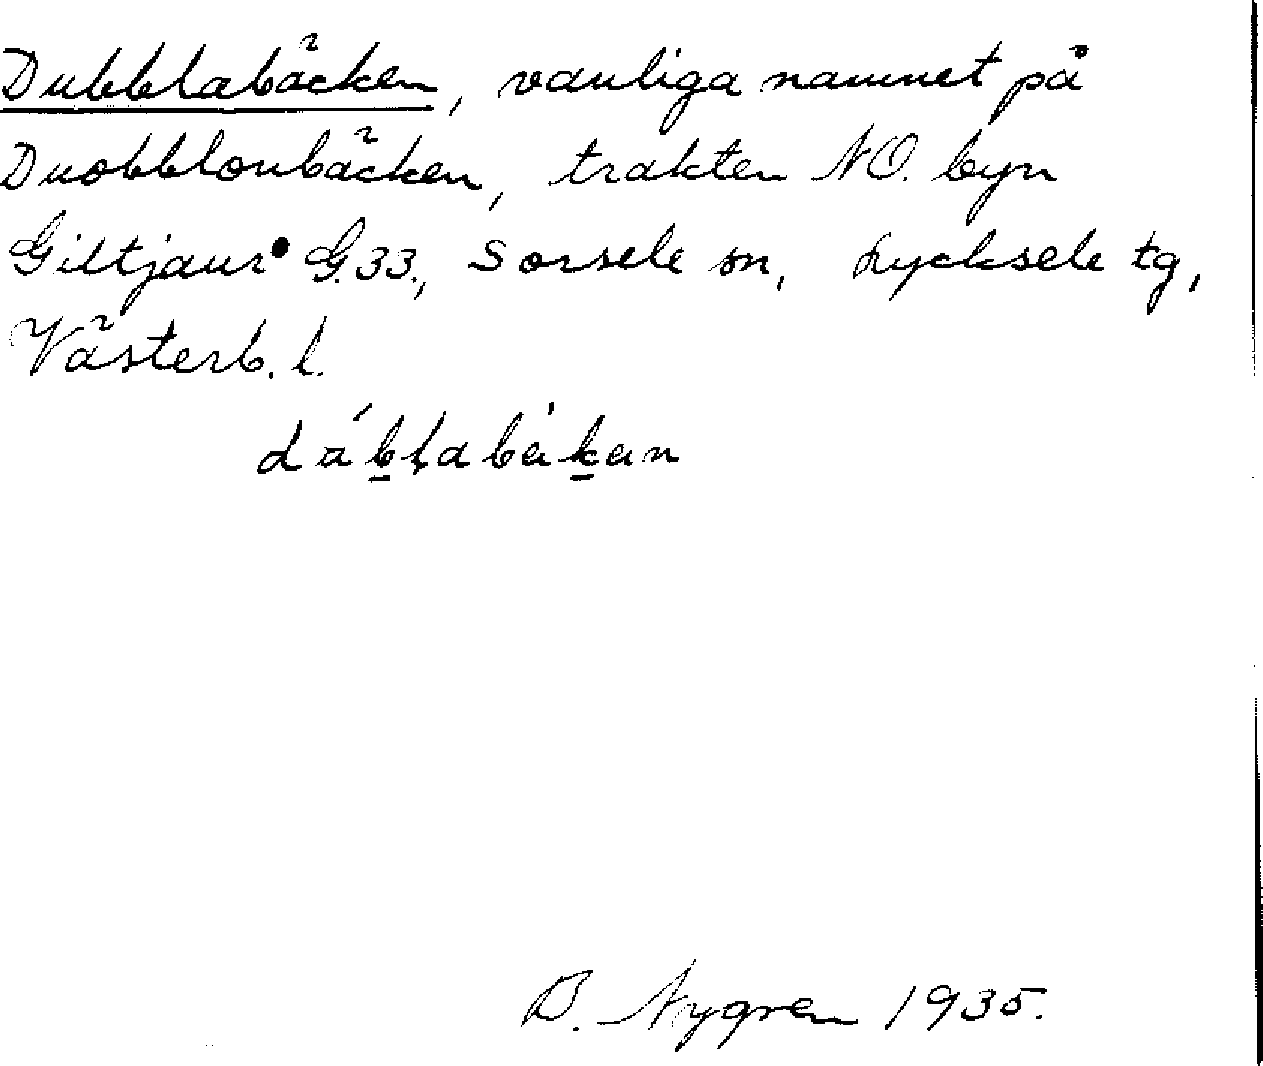 Dubblabäcken, vanliga namnet på
Duobblonbäcken, trakten NO. byn
Giltjaur G.33., Sorsele sn, Lycksele tg,
Västerb. l.
B. Nygren 1935.